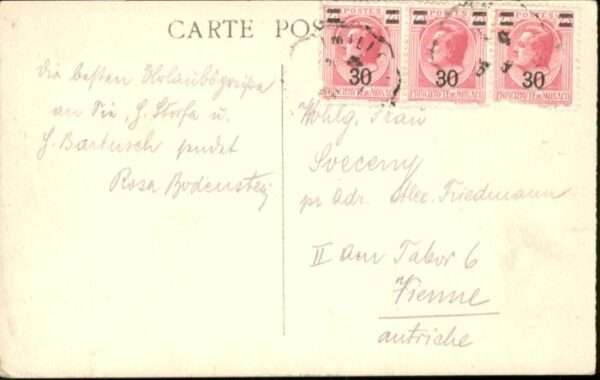 CARTE POS
POSTES POSTES POSTES
30 30 30
PRINCIPAUTÉ DE MONACO PRINCIPAUTÉ DE MONACO PRINCIPAUTÉ DE MONACO
Die besten Urlaubsgrüße
an Sie, H. u.
H. Bartusch sendet
Rosa Bodensteg
Wohlg. Frau
Sveceny
pr. Adr. Alex. Friedmann
II am Tabor 6
Vienne
autriche